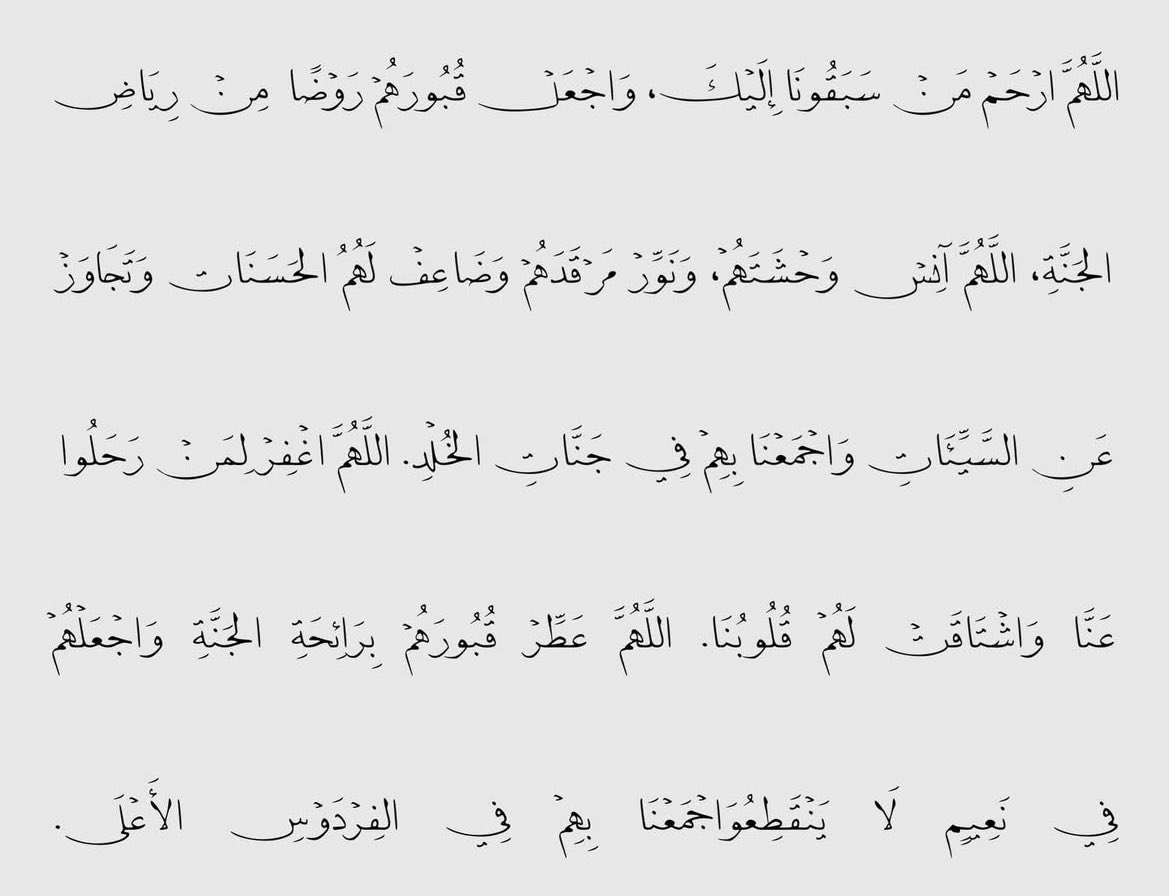 اللَّهُمَّ ارْحَمْ مَنْ سَبَقُونَا إِلَيْكَ، وَاجْعَلْ قُبُورَهُمْ رَوْضًا مِنْ رِيَاضِ
الجَنَّةِ، اللَّهُمَّ آنِسْ وَحْشَتَهُمْ، وَنَوِّرْ مَرْقَدَهُمْ وَضَاعِفْ لَهُمُ الحَسَنَات وَتَجَاوَزْ
عَنِ السَّيِّئَاتِ وَاجْمَعْنَا بِهِمْ فِي جَنَّاتِ الخُلْدِ. اللَّهُمَّ اغْفِرْ لِمَنْ رَحَلُوا
عَنَّا وَاشْتَاقَتْ لَهُمْ قُلُوبُنَا. اللَّهُمَّ عَطِّرْ قُبُورَهُمْ بِرَائِحَةِ الجَنَّةِ وَاجْعَلْهُمْ
فِي نَعِيمٍ لَا يَنْقَطِعُ وَاجْمَعْنَا بِهِمْ فِي الفِرْدَوْسِ الأَعْلَى.